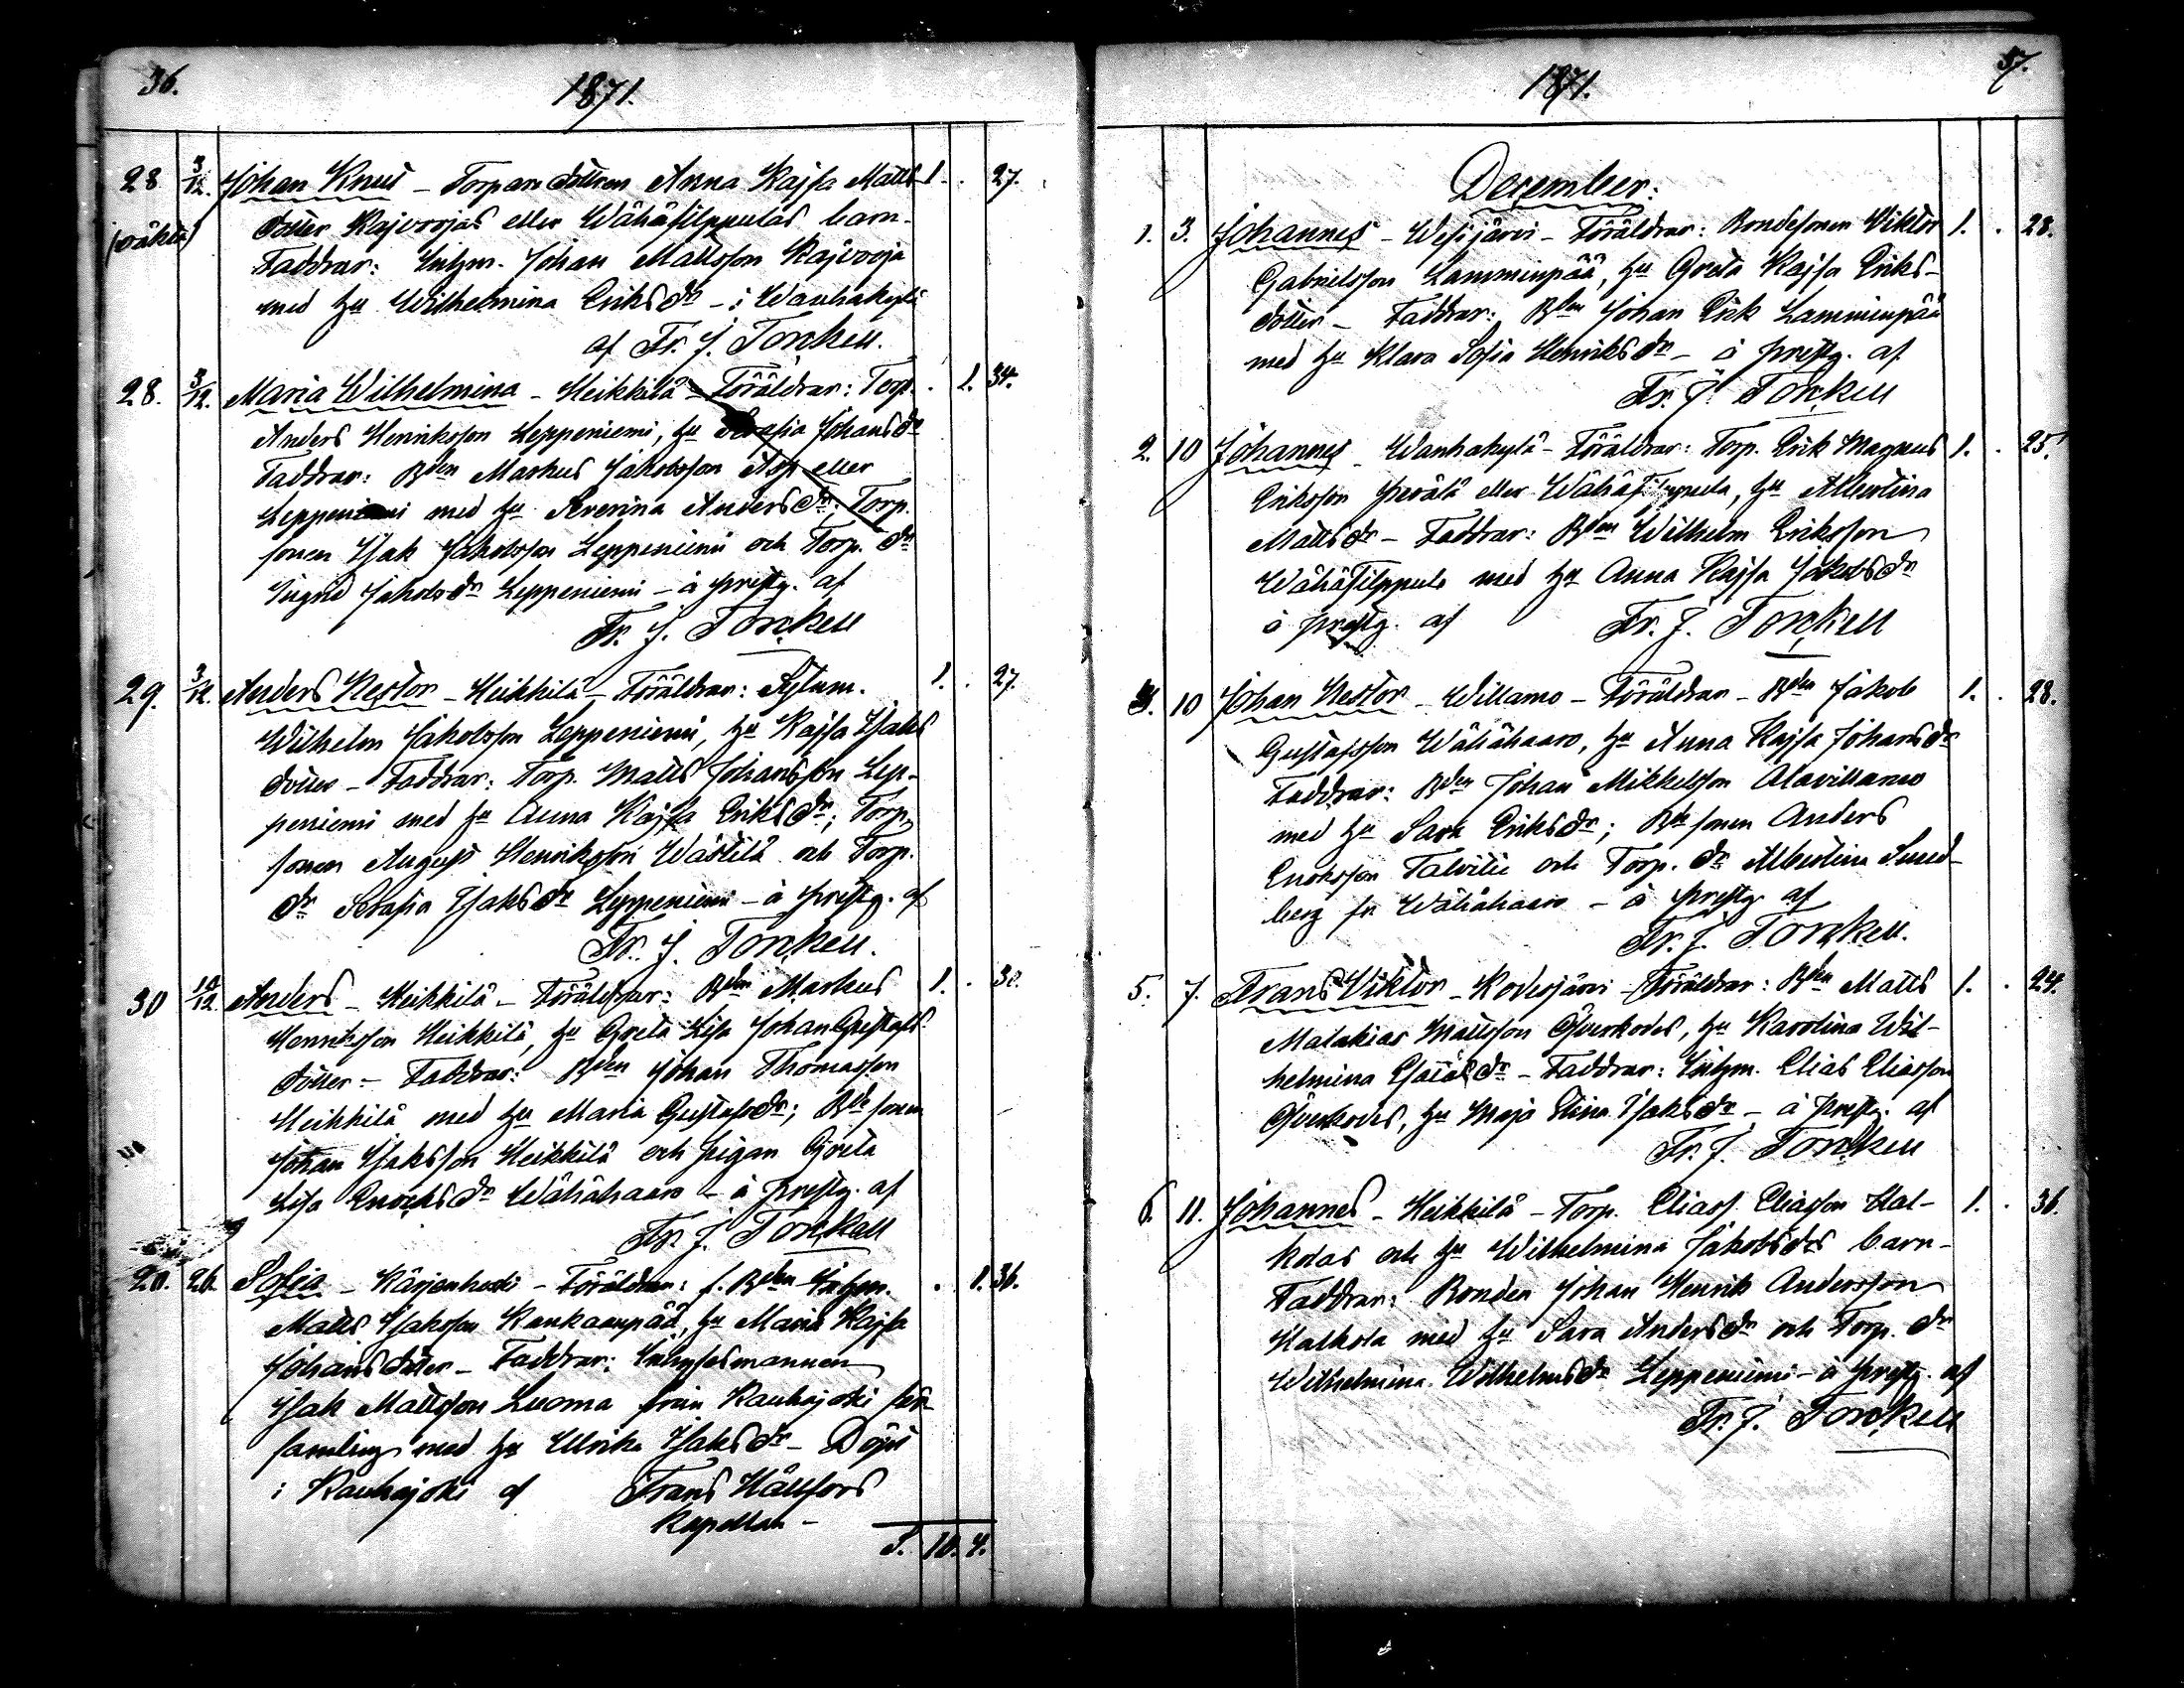 36.
1871.
28 3/12. Johan Knut – Torpare dottren Anna Kajsa Matts- 1. . 27.
(oäkta) dotter Rajvorjas eller Wähäfilppulas barn.
Faddrar: Inhm. Johan Mattsson Rajvorja
med hu Wilhelmina Eriksdr – i Wanhakylä
af Fr. J. Torckell.
28. 3/12. Maria Wilhelmina – Heikkilä – Föräldrar: Torp. . 1. 34.
Anders Henriksson Leppeniemi, hu Serafia Johansdr
Faddrar: Bden Markus Jakobsson Asp eller
Leppeniemi med hu Severina Andersdr; Torp.
sonen Isak Jakobsson Leppeniemi och Torp. dr
Ingrid Jakobsdr Leppeniemi – å prestg. af
Fr. J. Torckell
29. 3/12. Anders Nestor – Heikkilä – Föräldrar: Sytnm. 1. . 27.
Wilhelm Jakobsson Leppeniemi, hu Kajsa Isaks
dotter – Faddrar: Torp. Matts Johansson Lep-
peniemi med hu Anna Kajsa Eriksdr; Torp.
sonen August Henriksson Wästilä och Torp.
dr Serafia Isaksdr Leppeniemi – å prestg. af
Fr. J. Torckell.
30 10/12 Anders – Heikkilä – Föräldrar: Bden Markus 1. . 30.
Henriksson Heikkilä, hu Greta Lisa Johan Gustafs-
dotter – Faddrar: Bden Johan Thomasson
Heikkilä med hu Maria Gustafsdr; Bdesonen
Johan Isaksson Heikkilä och pigan Greta
Lisa Enochsdr Wähähaaro – å prestg. af
Fr. J. Torckell
20. 26. Sofia – Kärjenkoski – Föräldrar: f. Bden Inhm. . 1. 36.
Matts Isaksson Kankaanpää, hu Maria Kajsa
Johansdotter – Faddrar: Inhysesmannen
Isak Mattsson Luoma från Kauhajoki för-
samling med hu Ulrika Isaksdr – Döpt
i Kauhajoki af Frans Hällfors
Kapellan –
S. 10. 4.
1871.
37.
December:
1. 3. Johannes – Wesijärvi – Föräldrar: Bondesonen Viktor 1. . 28.
Gabrielsson Lamminpää, hu Greta Kajsa Eriks-
dotter – Faddrar: Bden Johan Erik Lamminpää
med hu Klara Sofia Henriksdr – å prestg. af
Fr. J. Torckell
2. 10 Johannes – Wanhakylä – Föräldrar: Torp. Erik Magnus 1. . 25.
Eriksson Perälä eller Wähäfilppula, hu Albertina
Mattsdr – Faddrar: Bden Wilhelm Eriksson
Wähäfilppula med hu Anna Kajsa Jakobsdr
å prestg. af Fr. J. Torckell
3. 10 Johan Nestor – Willamo – Föräldrar – Bden Jakob 1. . 28.
Gustafsson Wähähaaro, hu Anna Kajsa Johansdr
Faddrar: Bden Johan Mikkelsson Alavillamo
med hu Sara Eriksdr; Bdesonen Anders
Enoksson Talvitie och Torp. dr Albertina Smed-
berg fr Wähähaaro – å prestg af
Fr. J. Torckell.
5. 7. Frans Viktor – Kodesjärvi – Föräldrar: Bden Matts 1. . 24.
Malakias Mattsson Öfverkodes, hu Karolina Wil-
helmina Esaiasdr – Faddrar: Inhm. Elias Eliasson
Öfverkodes, hu Maja Stina Isaksdr – å prestg. af
Fr. J. Torckell
6. 11. Johannes – Heikkilä – Torp. Eliass Eliasson Hal- 1. . 36.
kolas och hu Wilhelmina Jakobsdrs barn –
Faddrar: Bonden Johan Henrik Andersson
Halkola med hu Sara Andersdr och Torp. dr
Wilhelmina Wilhelmsdr Leppeniemi – å prestg. af
Fr. J. Torckell